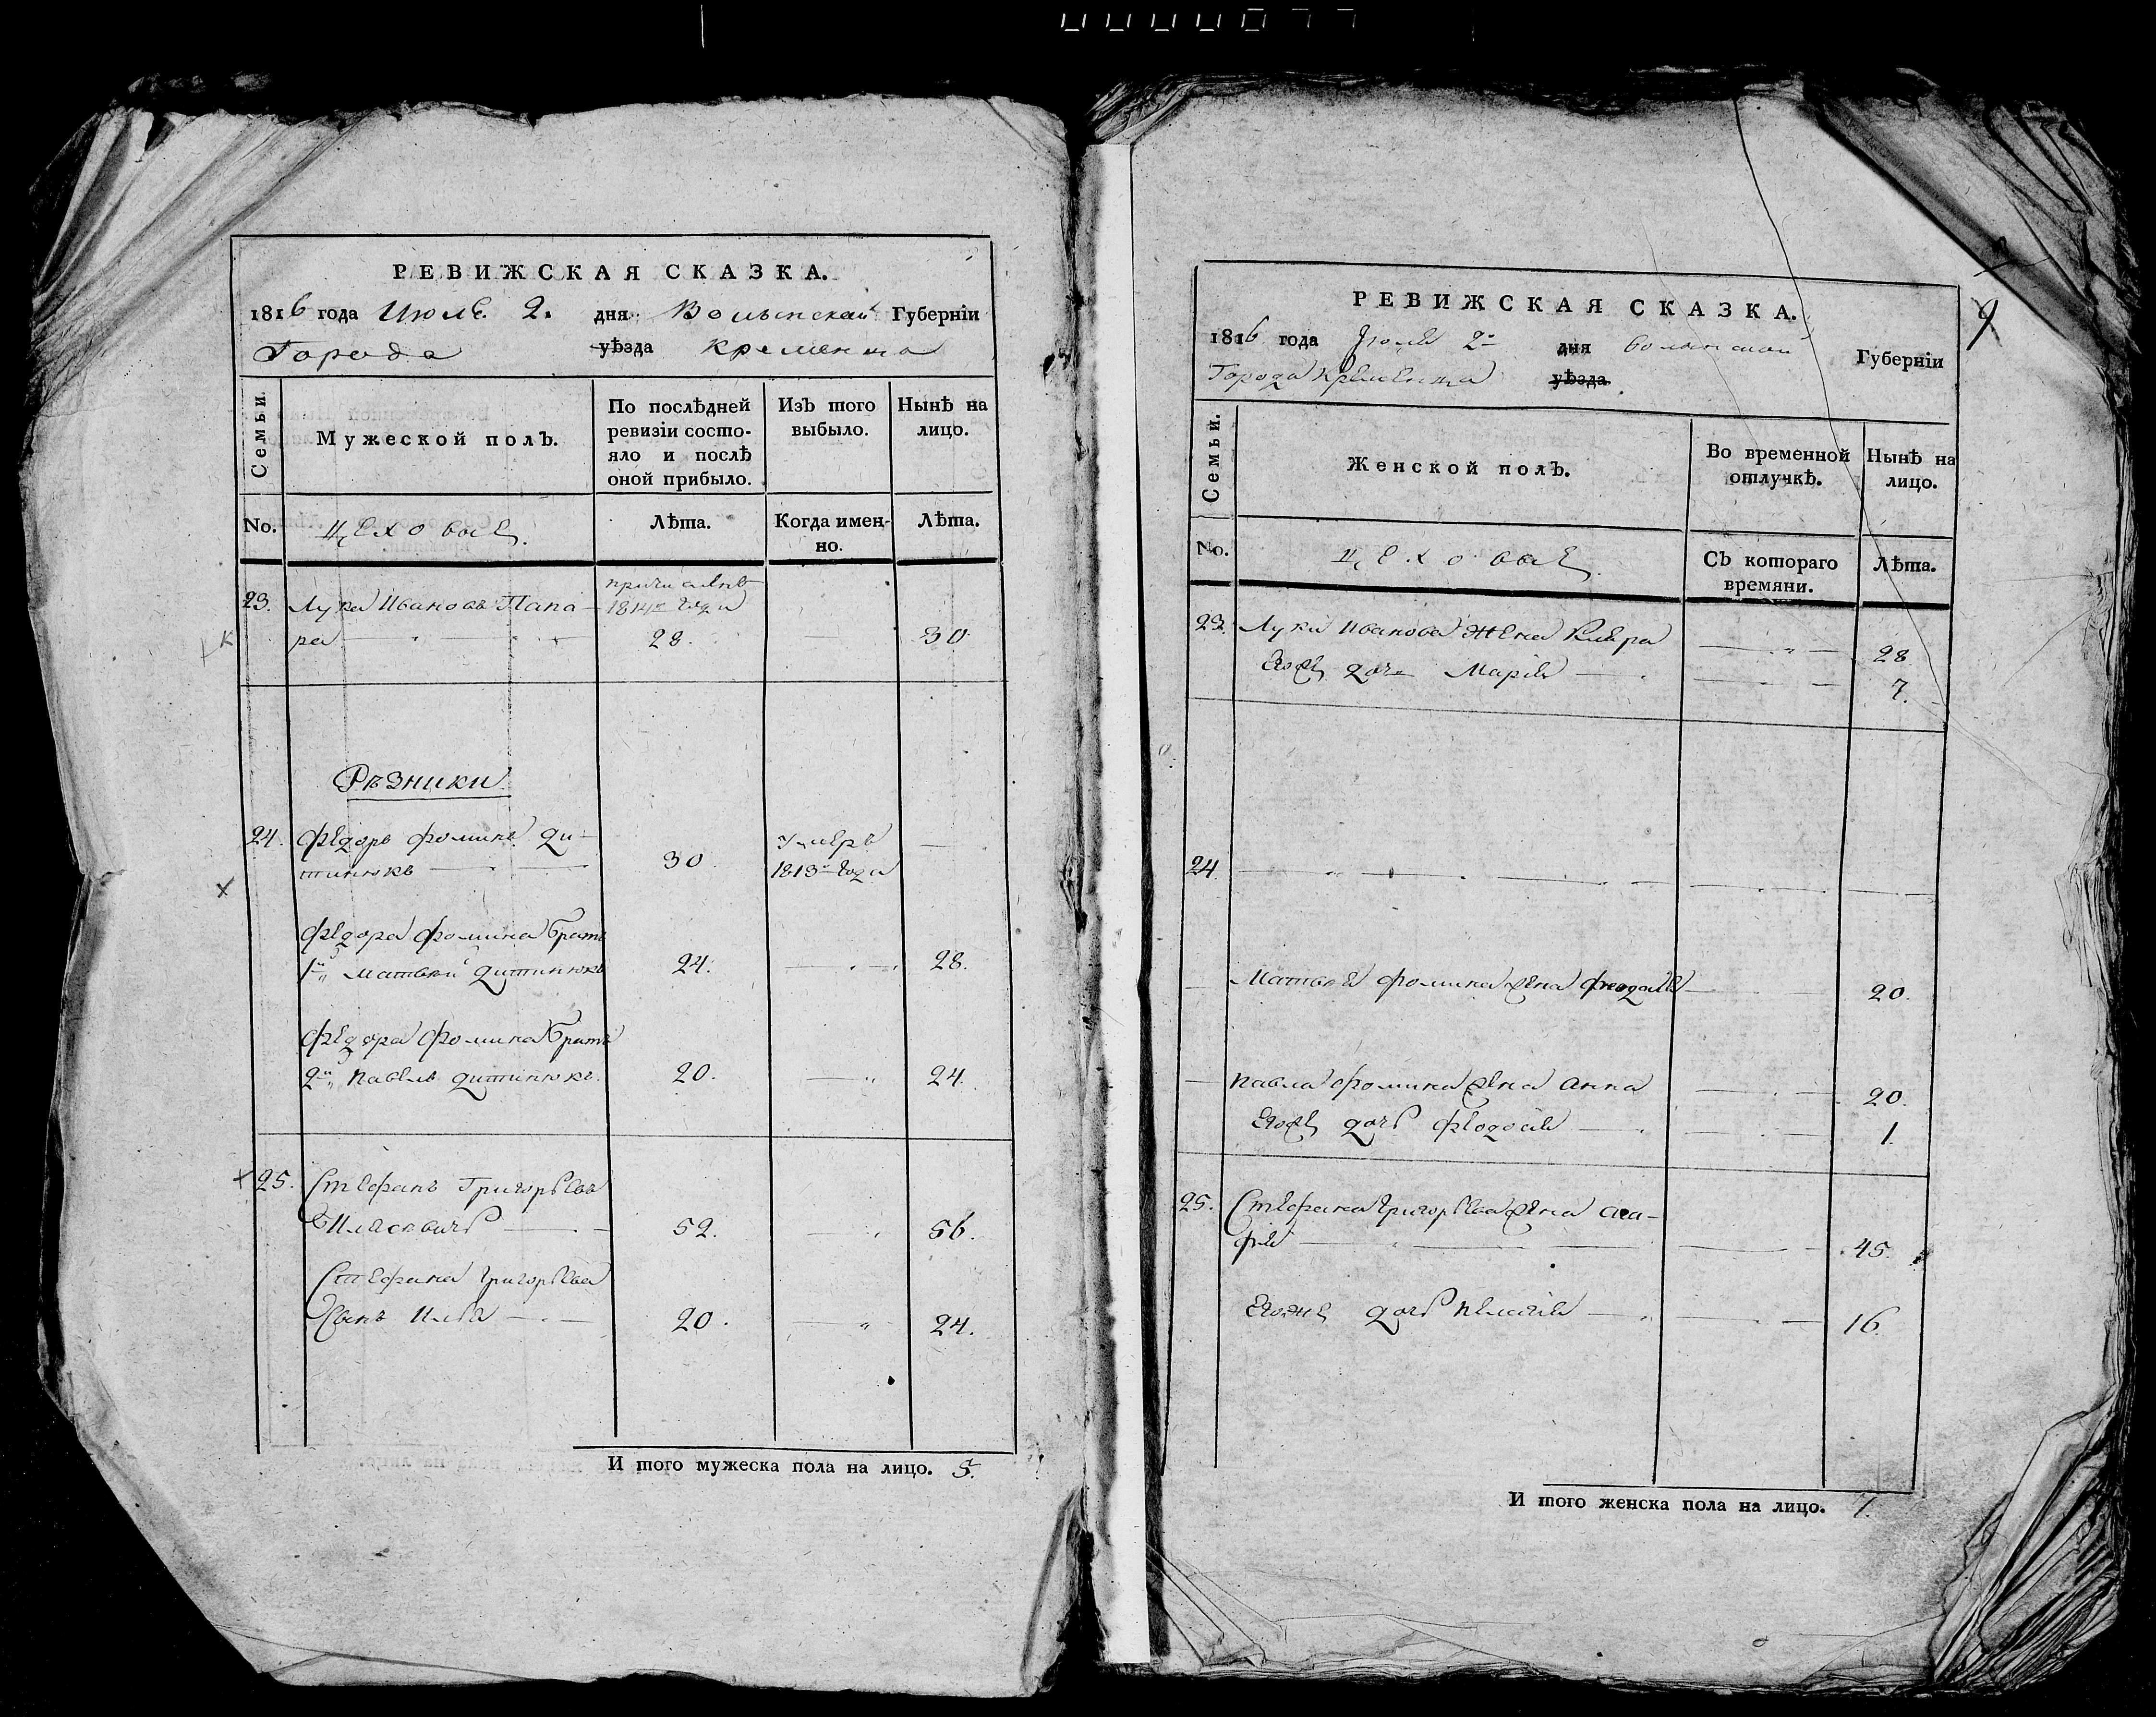 0000077
РЕВИЖСКАЯ СКАЗКА.
1816 года Июля 2. дня Волынской Губернїи
Города уѣзда Кременца
Семьи.
Мужеской полъ.
По послѣдней ревизїи состояло и послѣ оной прибыло.
Изъ того выбыло.
Нынѣ на лицо.
No.
Цеховые.
Лѣта.
Когда именно.
Лѣта.
23. Лука Ивановъ Папа- причисленъ 1814го года
ра 28. 30
Рѣзники
24. Федоръ Фоминъ Ди- Умеръ
тинюкъ 30. 1813го года
Федора Фомина братъ
1й Матвей Дитинюкъ 24. 28.
Федора Фомина братъ
2й Павелъ Дитинюкъ. 20. 24.
25. Стефанъ Григорьевъ
52. 56.
Стефана Григорьева
Сынъ Илья 20. 24.
И того мужеска пола на лицо. 5.
9
РЕВИЖСКАЯ СКАЗКА.
1816 года Июля 2го дня Волынской Губернїи
Города Кременца уѣзда
Семьи.
Женской полъ.
Во временной отлучкѣ.
Нынѣ на лицо.
No.
Цеховые.
Съ котораго времяни.
Лѣта.
23. Луки Иванова Жена 28
Егоже дочь Марія 7.
24.
Матвея Фомина жена 20.
Павла Фомина жена Анна 20.
Егоже дочь Феодосія 1.
25. Стефана Григорьева жена Ага-
фія 45.
Егоже дочь Пелагія 16.
И того женска пола на лицо. 7.